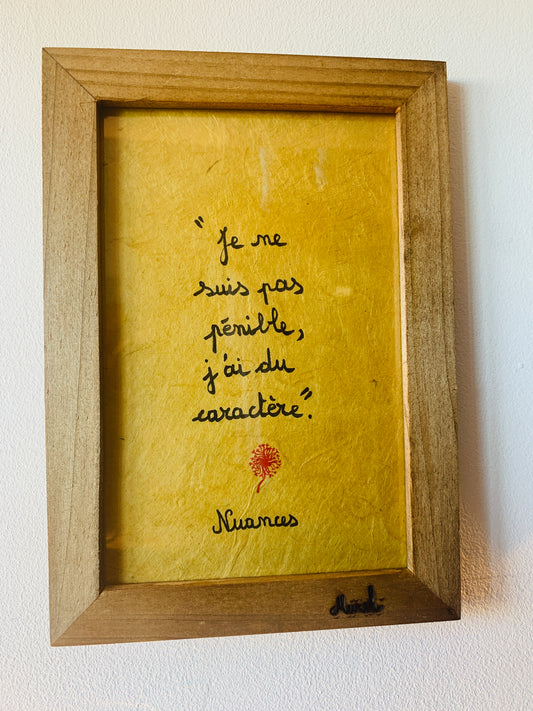 "Je ne
suis pas
pénible,
j'ai du
caractère".
Nuances